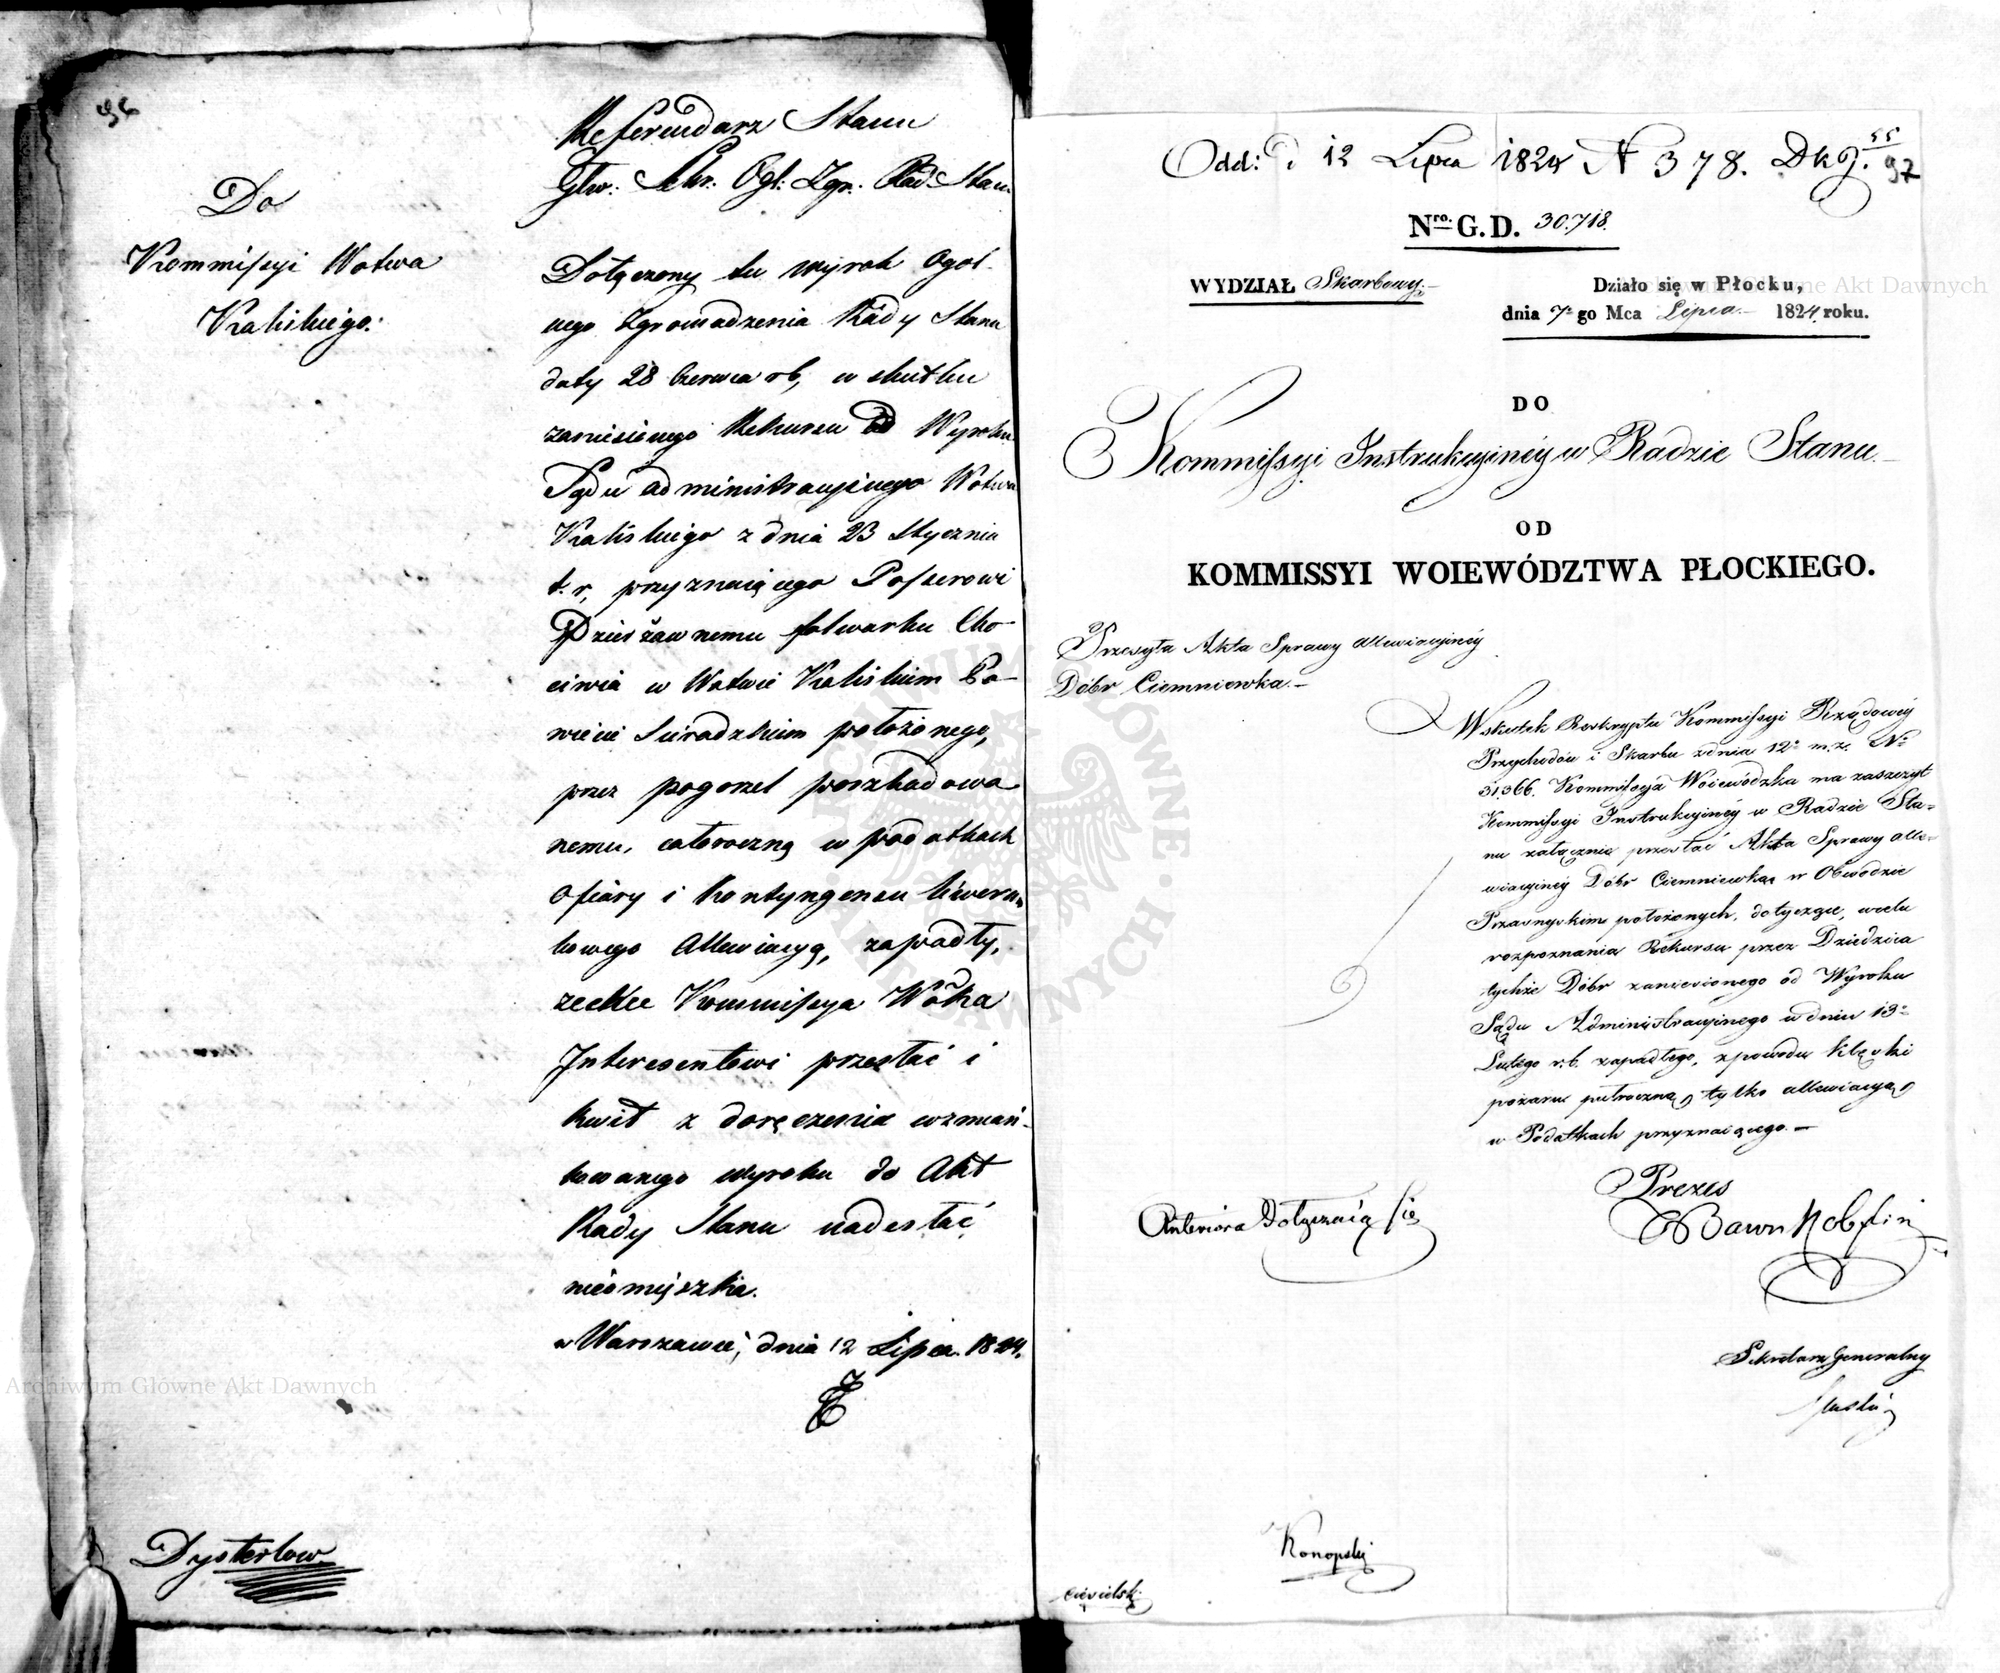 96
Referendarz Stanu
Głw: Sekr. Ogl: Zgr. Rad: Stanu
Do
Kommissyi Wotwa
Kaliskiego:
Dołączony tu wyrok Ogol-
nego Zgromadzenia Rady Stanu
daty 28 Czerwca rb, w skutku
zaniesionego Rekursu od Wyroku
Sądu administracyinego Wotwa
Kaliskiego z dnia 23 Stycznia
t. r, przyznaiącego Posserowi
Dzierżawnemu folwarku Cho-
ciwia w Wotwie Kaliskiem Po-
wiecie Sieradzkim położonego,
przez pogorzel poszkodowa-
nemu, całoroczną w podatkach
Ofiary i Kontyngensu liweran-
kowego Allewiacyą, zapadły,
zechce Kommissya Wdzka
Interesentowi przesłać i
kwit z doręczenia wzmian-
kowanego wyroku do Akt
Rady Stanu nadesłać
nieomieszka.
w Warszawie, dnia 12 Lipca 1824.
Dysterlow
Odd: d 12 Lipca 1824 N 378. DKJ. 55
97
Nro. G. D. 30.718.
WYDZIAŁ Skarbowy.
Działo się w Płocku,
dnia 7 go Mca Lipca 1824 roku.
DO
Kommissyi Instrukcyinéy w Radzie Stanu.
OD
KOMMISSYI WOIEWÓDZTWA PŁOCKIEGO.
Przesyła Akta Sprawy allewiacyinéy
Dóbr Ciemniewka.
Wskutek Reskryptu Kommissyi Rządowéy
Przychodów i Skarbu z dnia 12º m. z. Nº
31,366. Kommissyia Woiewódzka ma zaszczyt
Kommissyi Instrukcyinéy w Radzie Sta-
nu załącznie przesłać Akta Sprawy alle-
wiacyinéy Dóbr Ciemniewka w Obwodzie
Przasnyskim położonych, dotyczące, wcelu
rozpoznania Rekursu przez Dziedzica
tychże Dóbr zaniesionego od Wyroku
Sądu Administracyinego w dniu 13º
Lutego r. b. zapadłego, z powodu klęski
pożaru półroczną tylko allewiacyą
w Podatkach przyznaiącego.
Prezes
Sekretarz Generalny
Anteriora dołączaią się
Konopski
Ciesielski
Archiwum Główne Akt Dawnych
Archiwum Główne Akt Dawnych
ARCHIWUM GŁÓWNE AKT DAWNYCH